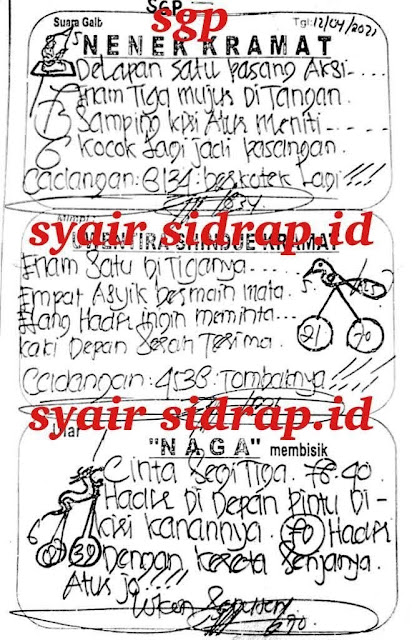 SGP
sgp
Suara Gaib
Tgl: 12/04/2021
NENEK KRAMAT
Delapan satu pasang Aksi....
Enam Tiga mujus Di Tangan.
Samping kisi Atus Meniti....
Kocok Lagi jadi pasangan.
Cadangan: 8134: beskotek Lagi!!!
syair sidrap.id
KRAMAT
Enam Satu Di Tiganya....
Empat Asyik besmain mata.
Elang Hadis ingin meminta...
kaki Depan Sesah Tesima.
Cadangan: 4538. Tombaknya!!!!
21 70
syair sidrap.id
"NAGA" membisik
Cinta Segi Tiga. 78-40.
Hadis Di Depan pintu Di-
kisi kanannya. 70 Hadis
6 39
Dengan keseta Senjanya.
Atus jo!!!!